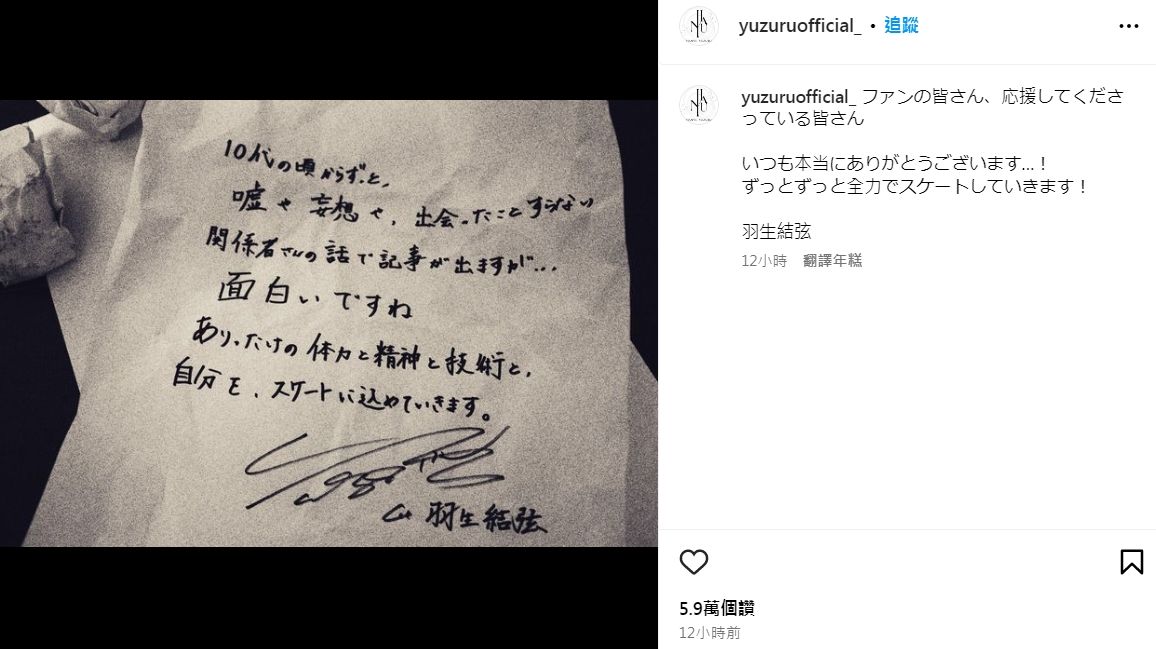 10代の頃からずっと、
嘘や妄想や、出会ったことすらない
関係者さんの話で記事が出ますが…
面白いですね
ありったけの体力と精神と技術と、
自分を、スケートに込めていきます。
羽生結弦
yuzuruofficial_ • 追蹤
yuzuruofficial_ ファンの皆さん、応援してくださ
っている皆さん
いつも本当にありがとうございます…！
ずっとずっと全力でスケートしていきます！
羽生結弦
12小時 翻譯年糕
5.9萬個讚
12小時前